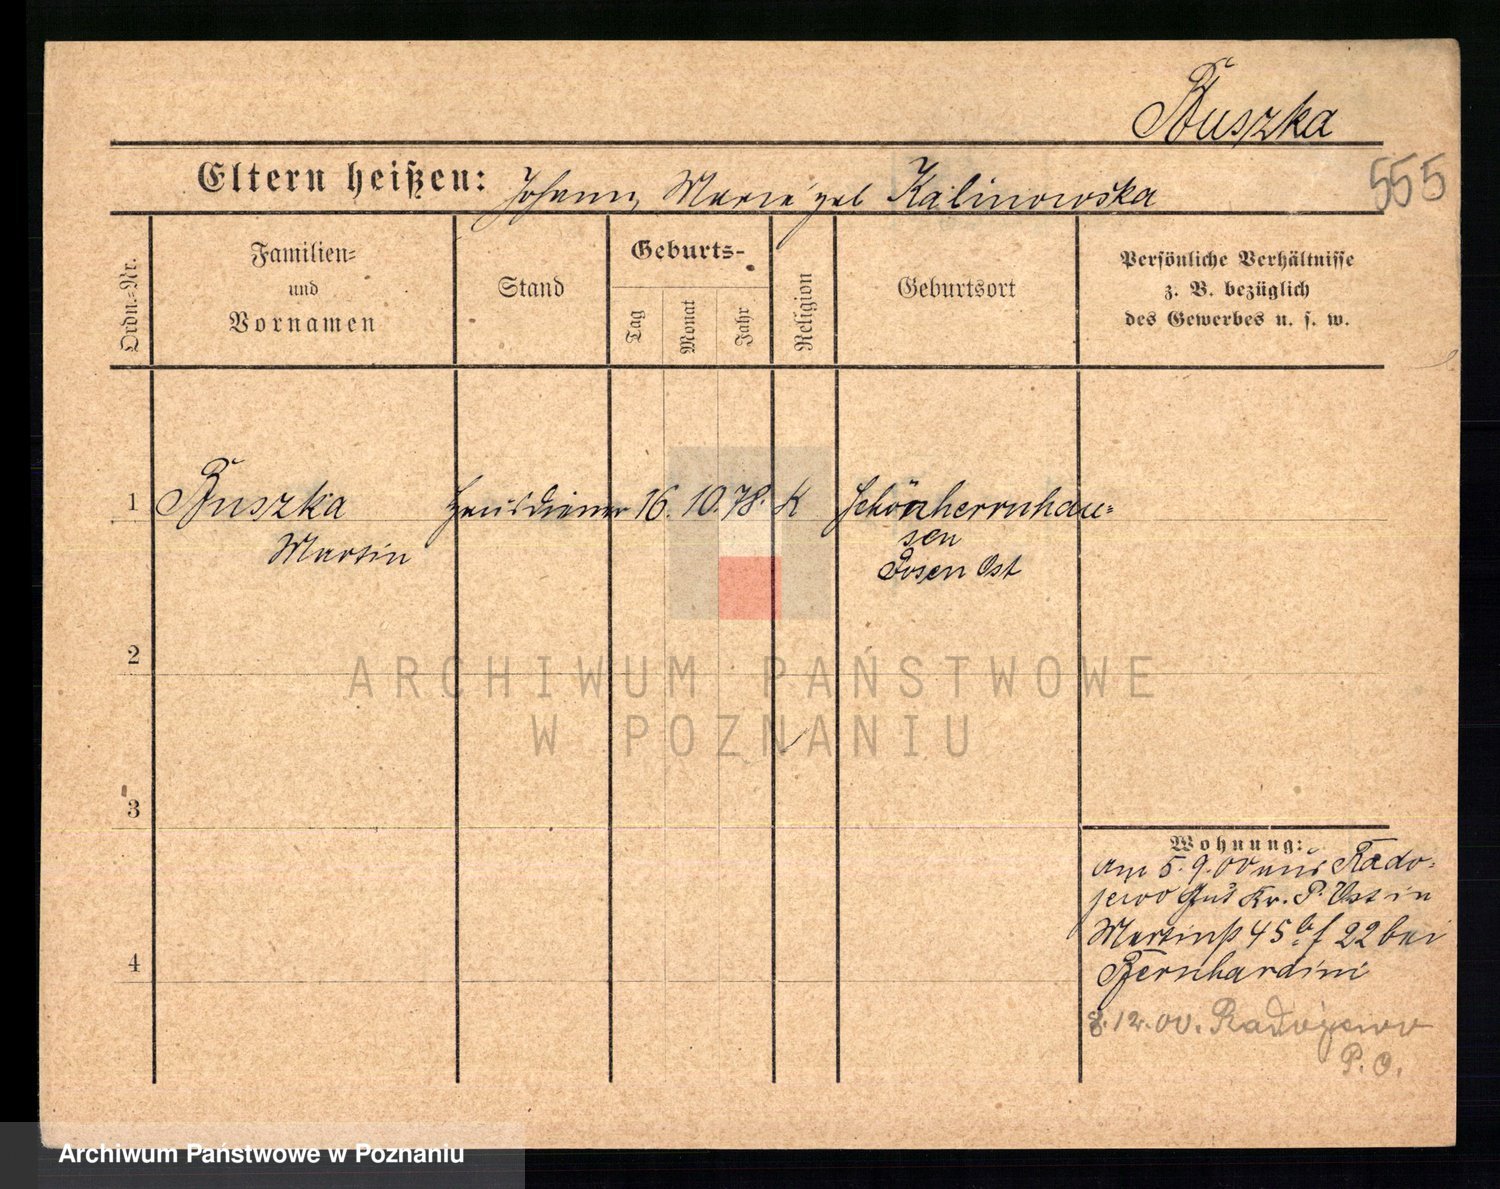 Buszka
555
Eltern heißen: Johann, Marie geb Kalinowska
Ordn.-Nr.
Familien=
und
Vornamen
Stand
Geburts-
Tag
Monat
Jahr
Religion
Geburtsort
Persönliche Verhältnisse
z. B. bezüglich
des Gewerbes u. s. w.
1 Buszka Hausdiener 16. 10. 78. K Schönherrnhau=
Martin sen
Posen Ost
2
3
4
ARCHIWUM PAŃSTWOWE
W POZNANIU
Wohnung:
Am 5. 9. 00 aus Rado=
jewo Gut Kr. P. Ost in
Martinstr 45 22 bei
Bernhardini
8. 12. 00. Radojewo
P. O.
Archiwum Państwowe w Poznaniu